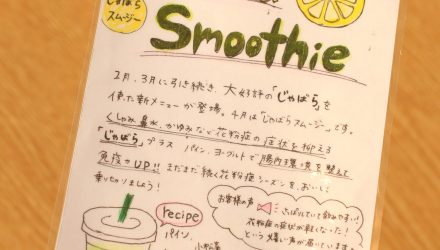 じゃばら
スムージー
Smoothie
2月、3月に引き続き、大好評の「じゃばら」を
使った新メニューが登場。4月は「じゃばらスムージー」です。
くしゃみ鼻水、かゆみなど花粉症の症状を抑える
「じゃばら」プラス パイン、ヨーグルトで腸内環境を整えて
免疫力UP!! まだまだ続く花粉症シーズンを、おいしく
乗りきりましょう!
お客様の声
さっぱりしていて飲みやすい!
花粉症の症状が軽くなった!
という嬉しい声が届いています。
recipe
パイン、
小松菜